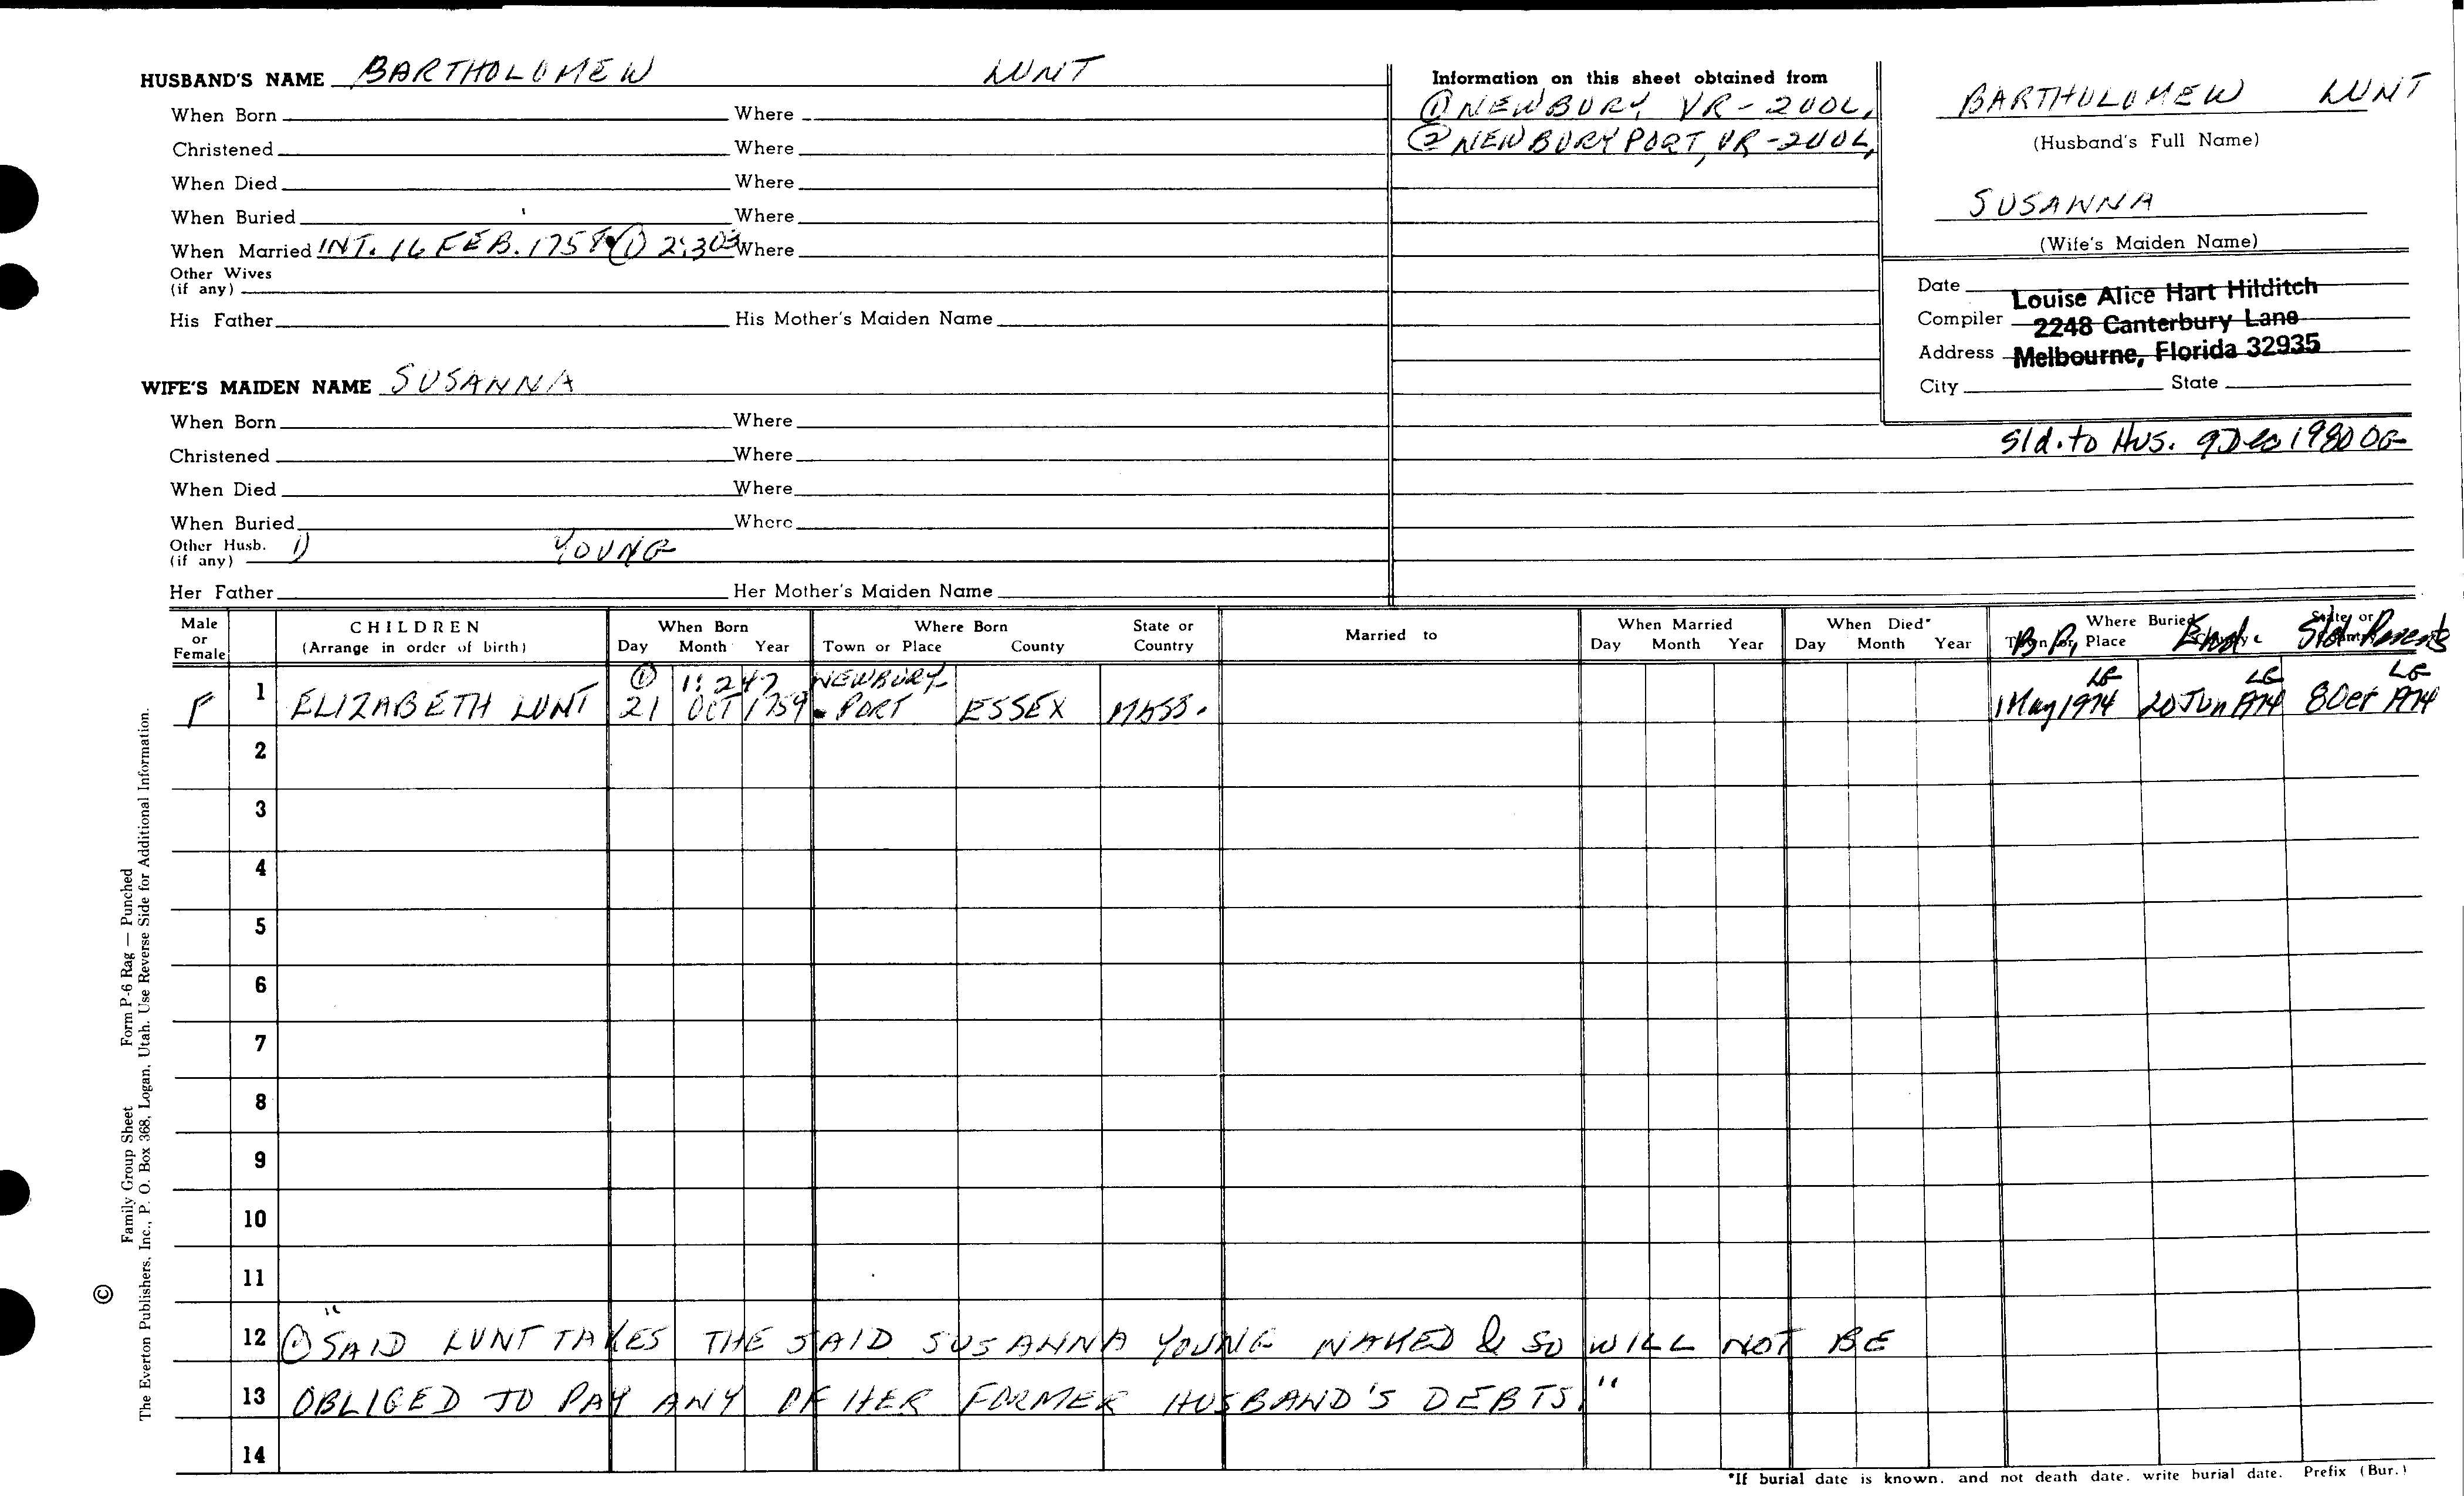 HUSBAND'S NAME BARTHOLOMEW LUNT
When Born Where
Christened Where
When Died Where
When Buried Where
When Married INT. 16 FEB. 1758 ① 2:303 Where
Other Wives
(if any)
His Father His Mother's Maiden Name
WIFE'S MAIDEN NAME SUSANNA
When Born Where
Christened Where
When Died Where
When Buried Where
Other Husb. 1) YOUNG
(if any)
Her Father Her Mother's Maiden Name
Information on this sheet obtained from
① NEWBURY VR-
② NEWBURYPORT, VR-
BARTHOLOMEW LUNT
(Husband's Full Name)
SUSANNA
(Wife's Maiden Name)
Date Louise Alice Hart Hilditch
Compiler 2248 Canterbury Lane
Address Melbourne, Florida 32935
City State
Sld. to Hus. 9 Dec 1980 OG
Male or Female
CHILDREN
(Arrange in order of birth)
When Born
Day Month Year
Where Born
Town or Place County State or Country
Married to
When Married
Day Month Year
When Died*
Day Month Year
Where Buried
Place State or
B. P. End. Sld Parents
① 1:247 NEWBURY- LG LG LG
F 1 ELIZABETH LUNT 21 OCT 1759 PORT ESSEX MASS. 1 May 1974 20 Jun 1974 8 Oct 1974
2
3
4
5
6
7
8
9
10
11
12 ① "SAID LUNT TAKES THE SAID SUSANNA YOUNG NAKED & SO WILL NOT BE
13 OBLIGED TO PAY ANY OF HER FORMER HUSBAND'S DEBTS."
14
*If burial date is known, and not death date, write burial date. Prefix (Bur.)
© Family Group Sheet Form P-6 Rag — Punched
The Everton Publishers, Inc., P. O. Box 368, Logan, Utah. Use Reverse Side for Additional Information.